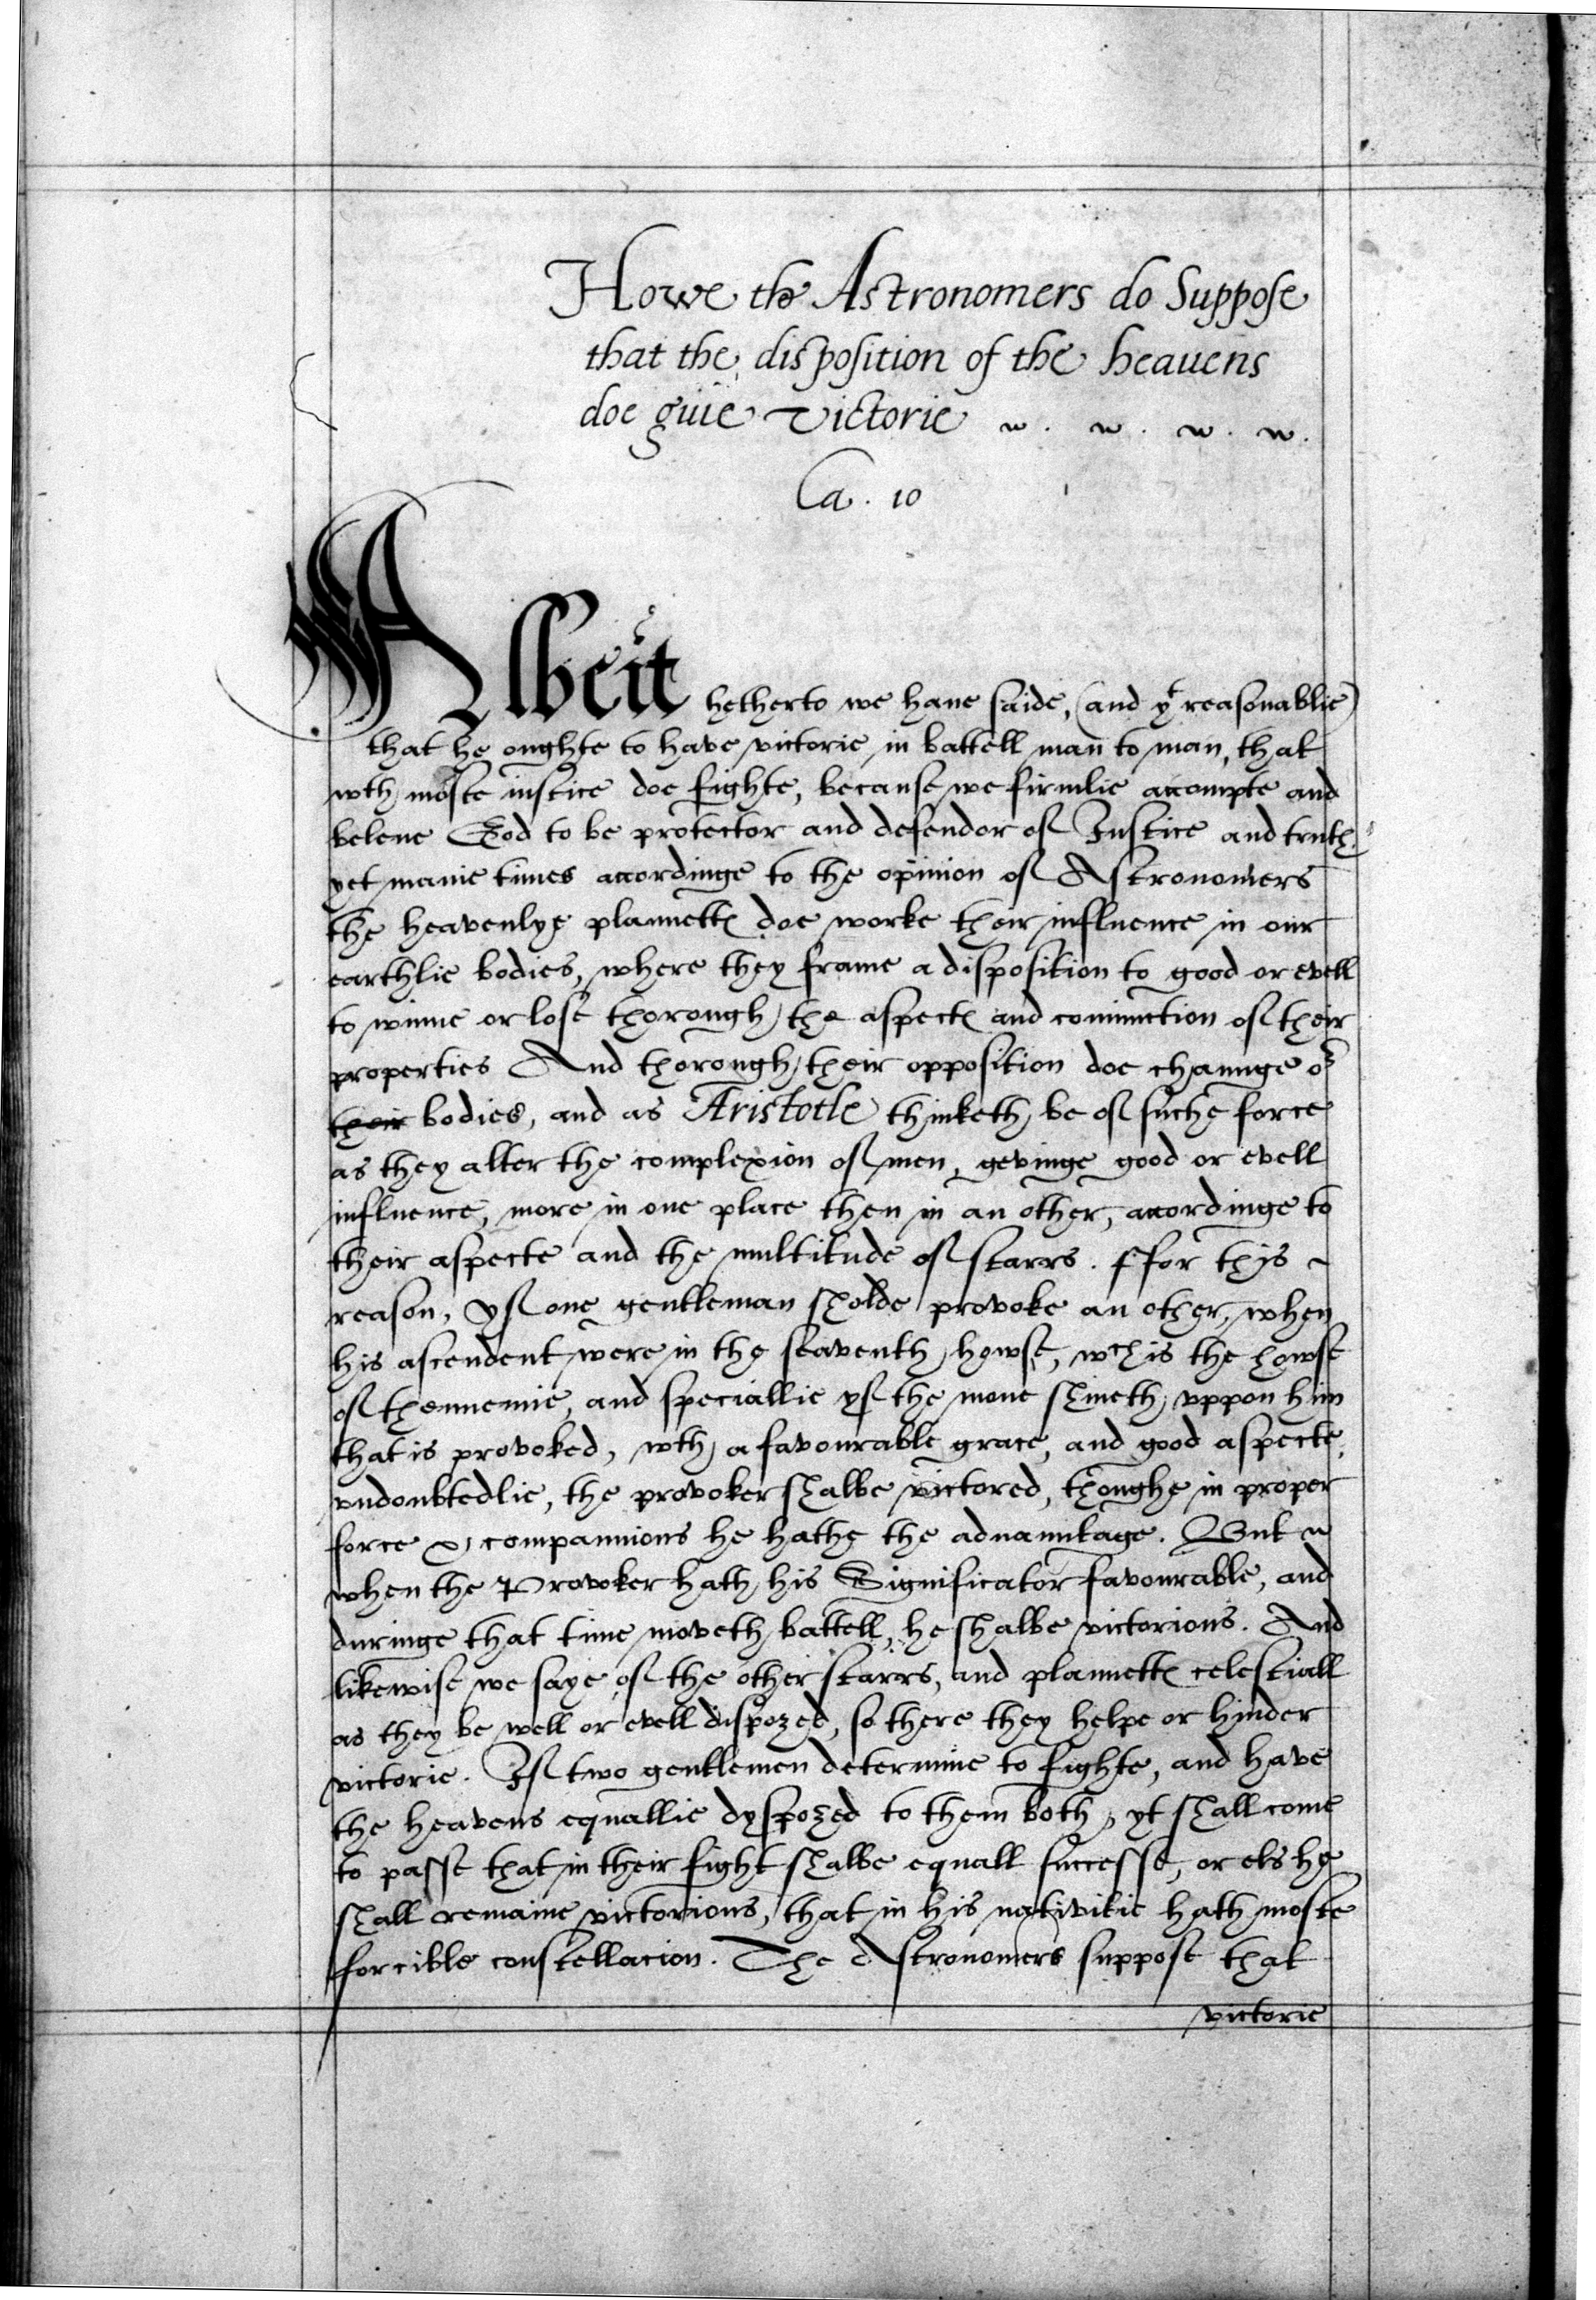 Howe the Astronomers do Suppose
that the disposition of the heauens
doe guie Victorie
Ca. 10
Albeit hetherto we haue saide, (and yt reasonablie)
that he oughte to have victorie in battell man to man, that
wth moste iustice doe fighte, because we firmlie accompte and
beleue God to be protector and defendor of Iustice and truth.
yet manie times accordinge to the opinion of Astronomers
the heavenlye plannettes doe worke their influence in our
earthlie bodies, where they frame a disposition to good or evell
to winne or lose thorough the aspectes and coniunction of their
properties And thorough their opposition doe chaunge or
their bodies, and as Aristotle thinketh be of suche force
as they alter the complexion of men, gevinge good or evell
influence, more in one place then in an other, accordinge to
their aspecte and the multitude of starrs. ffor thys ~
reason, yf one gentleman sholde provoke an other, when
his ascendent were in the seaventh howse, wch is the howse
of thennemie, and speciallie yf the mone shineth vppon him
that is provoked, wth a favourable grace, and good aspecte,
vndoubtedlie, the provoker shalbe victored, thoughe in proper
force & compannions he hathe the aduauntage. But
when the Provoker hath his Significator favourable, and
duringe that time moveth battell, he shalbe victorious. And
likewise we saye of the other starrs, and plannettes celestiall
as they be well or evell dispozed, so there they helpe or hinder
victorie. If two gentlemen determine to fighte, and have
the heavens equallie dyspozed to them both, yt shall come
to passe that in their fight shalbe equall successe, or els he
shall remaine victorious, that in his nativitie hath moste
forcible constellacion. The Astronomers suppose that
victorie